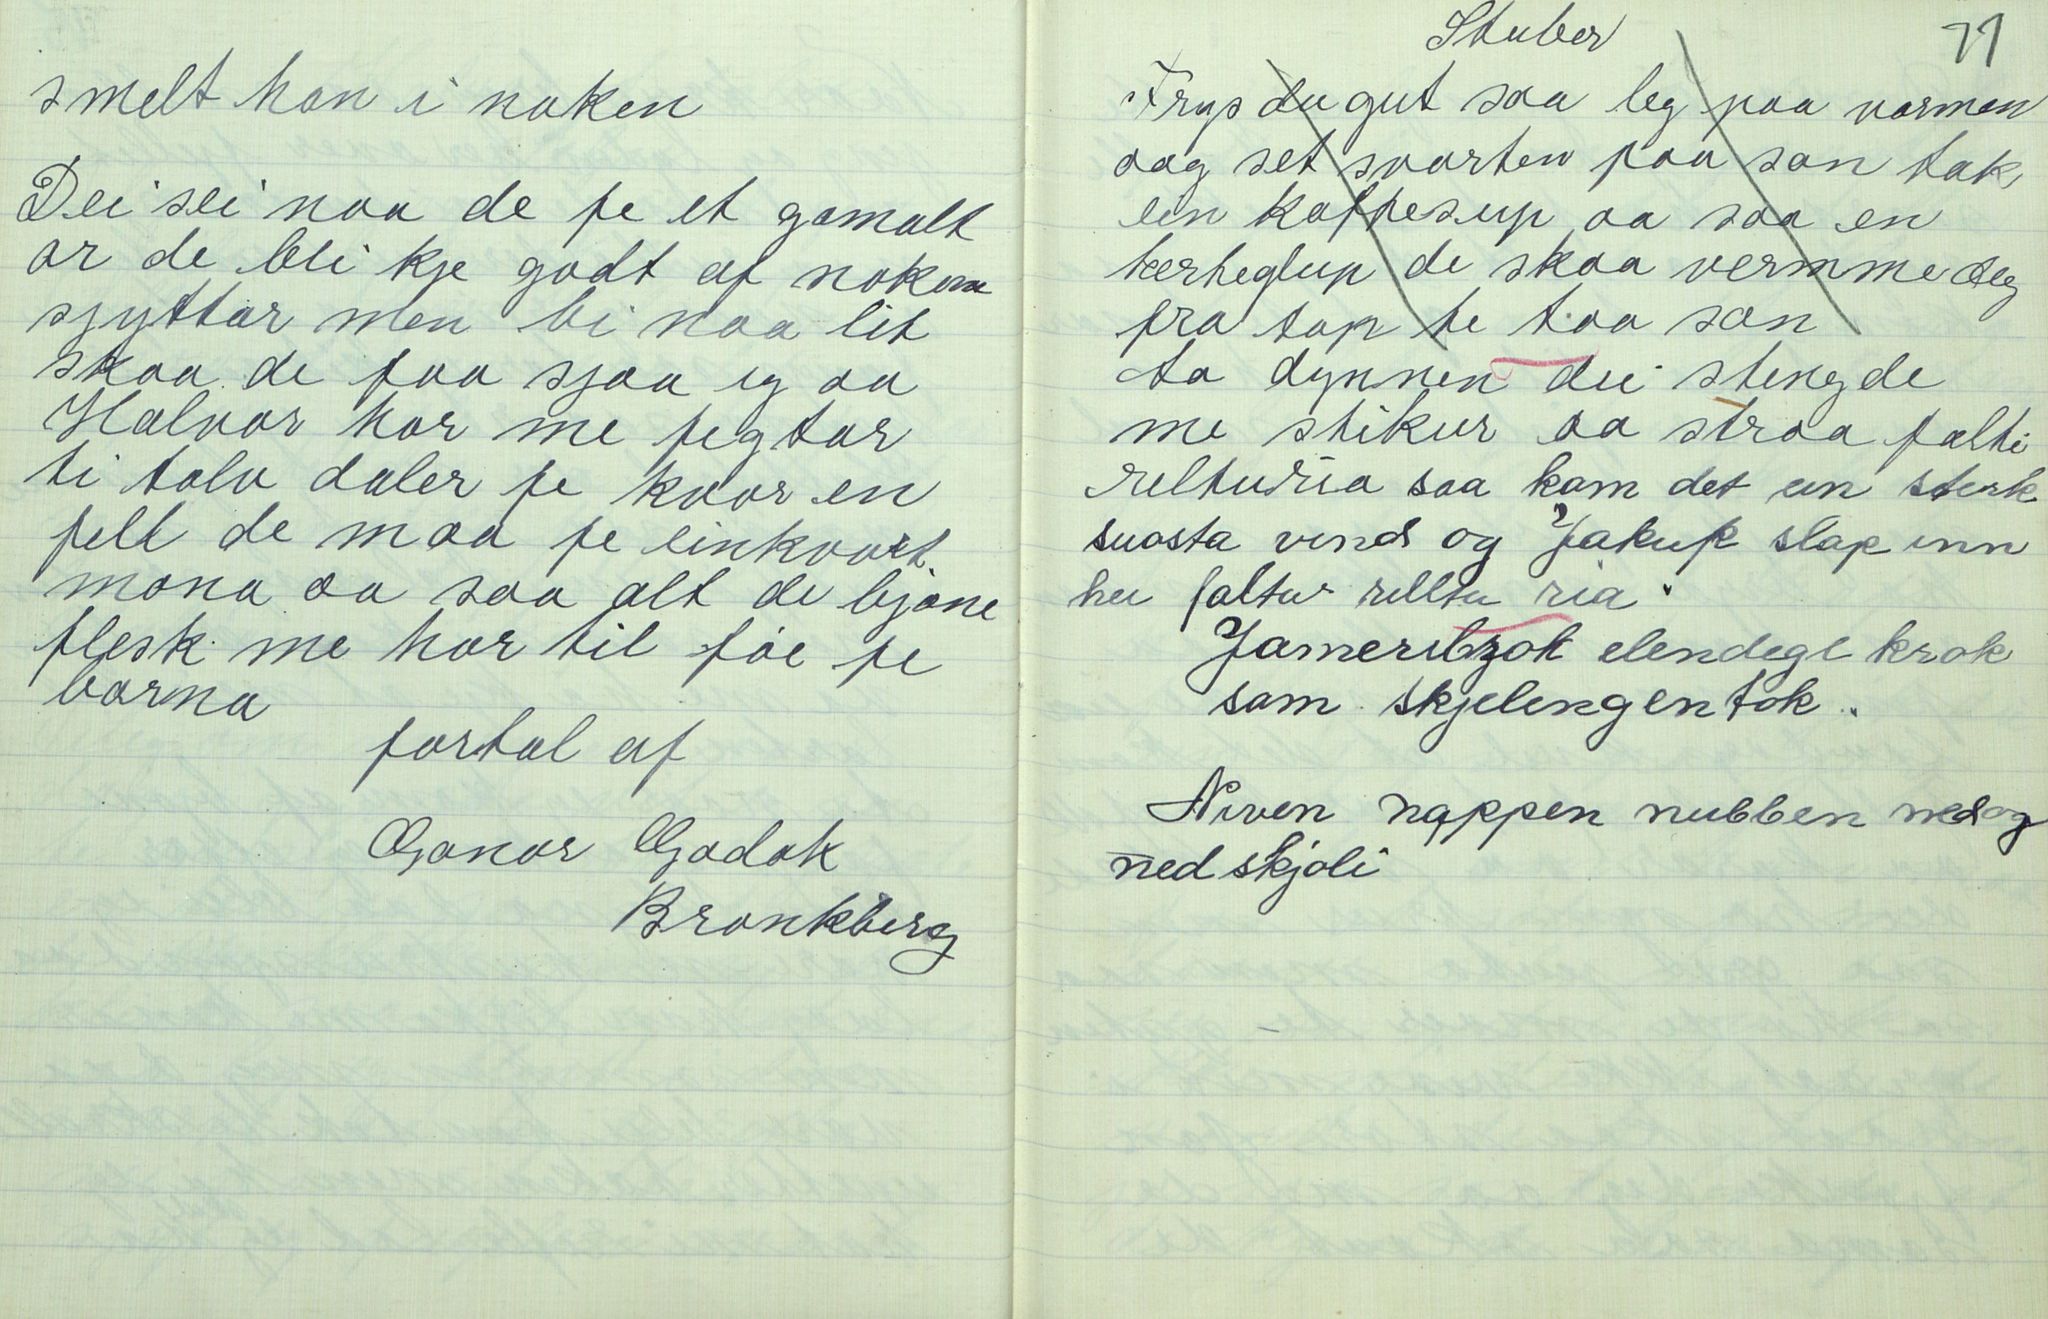 smelt han i naken
Dei sei naa de fe et gamalt
ar de bli kje godt af nokom
sjyttar men bi naa lit
skaa de faa sjaa eg aa
Halvor har me fegtar
ti talv daler fe kvar en
felt de maa fe einkvart
mona aa saa alt de bjøne
flesk me har til føe fe
barna
fortal af
Gonar Godak
Bronkberg
Stuber
71
Frys du gut saa leg paa varmen
aag set svarten paa san tak
ein kaffesup aa saa en
kerheglup de skaa vermme deg
fra tap te taa san
ta dynnen dei stengde
me stikur aa straa falti
relturia saa kam det ein sterk
suasta vind og Jakup slap inn
hei faltu relltu ria.
Jameribzok elendege krok
sam skjelengen tok.
Niven nappen nubben ned og
ned skjoli